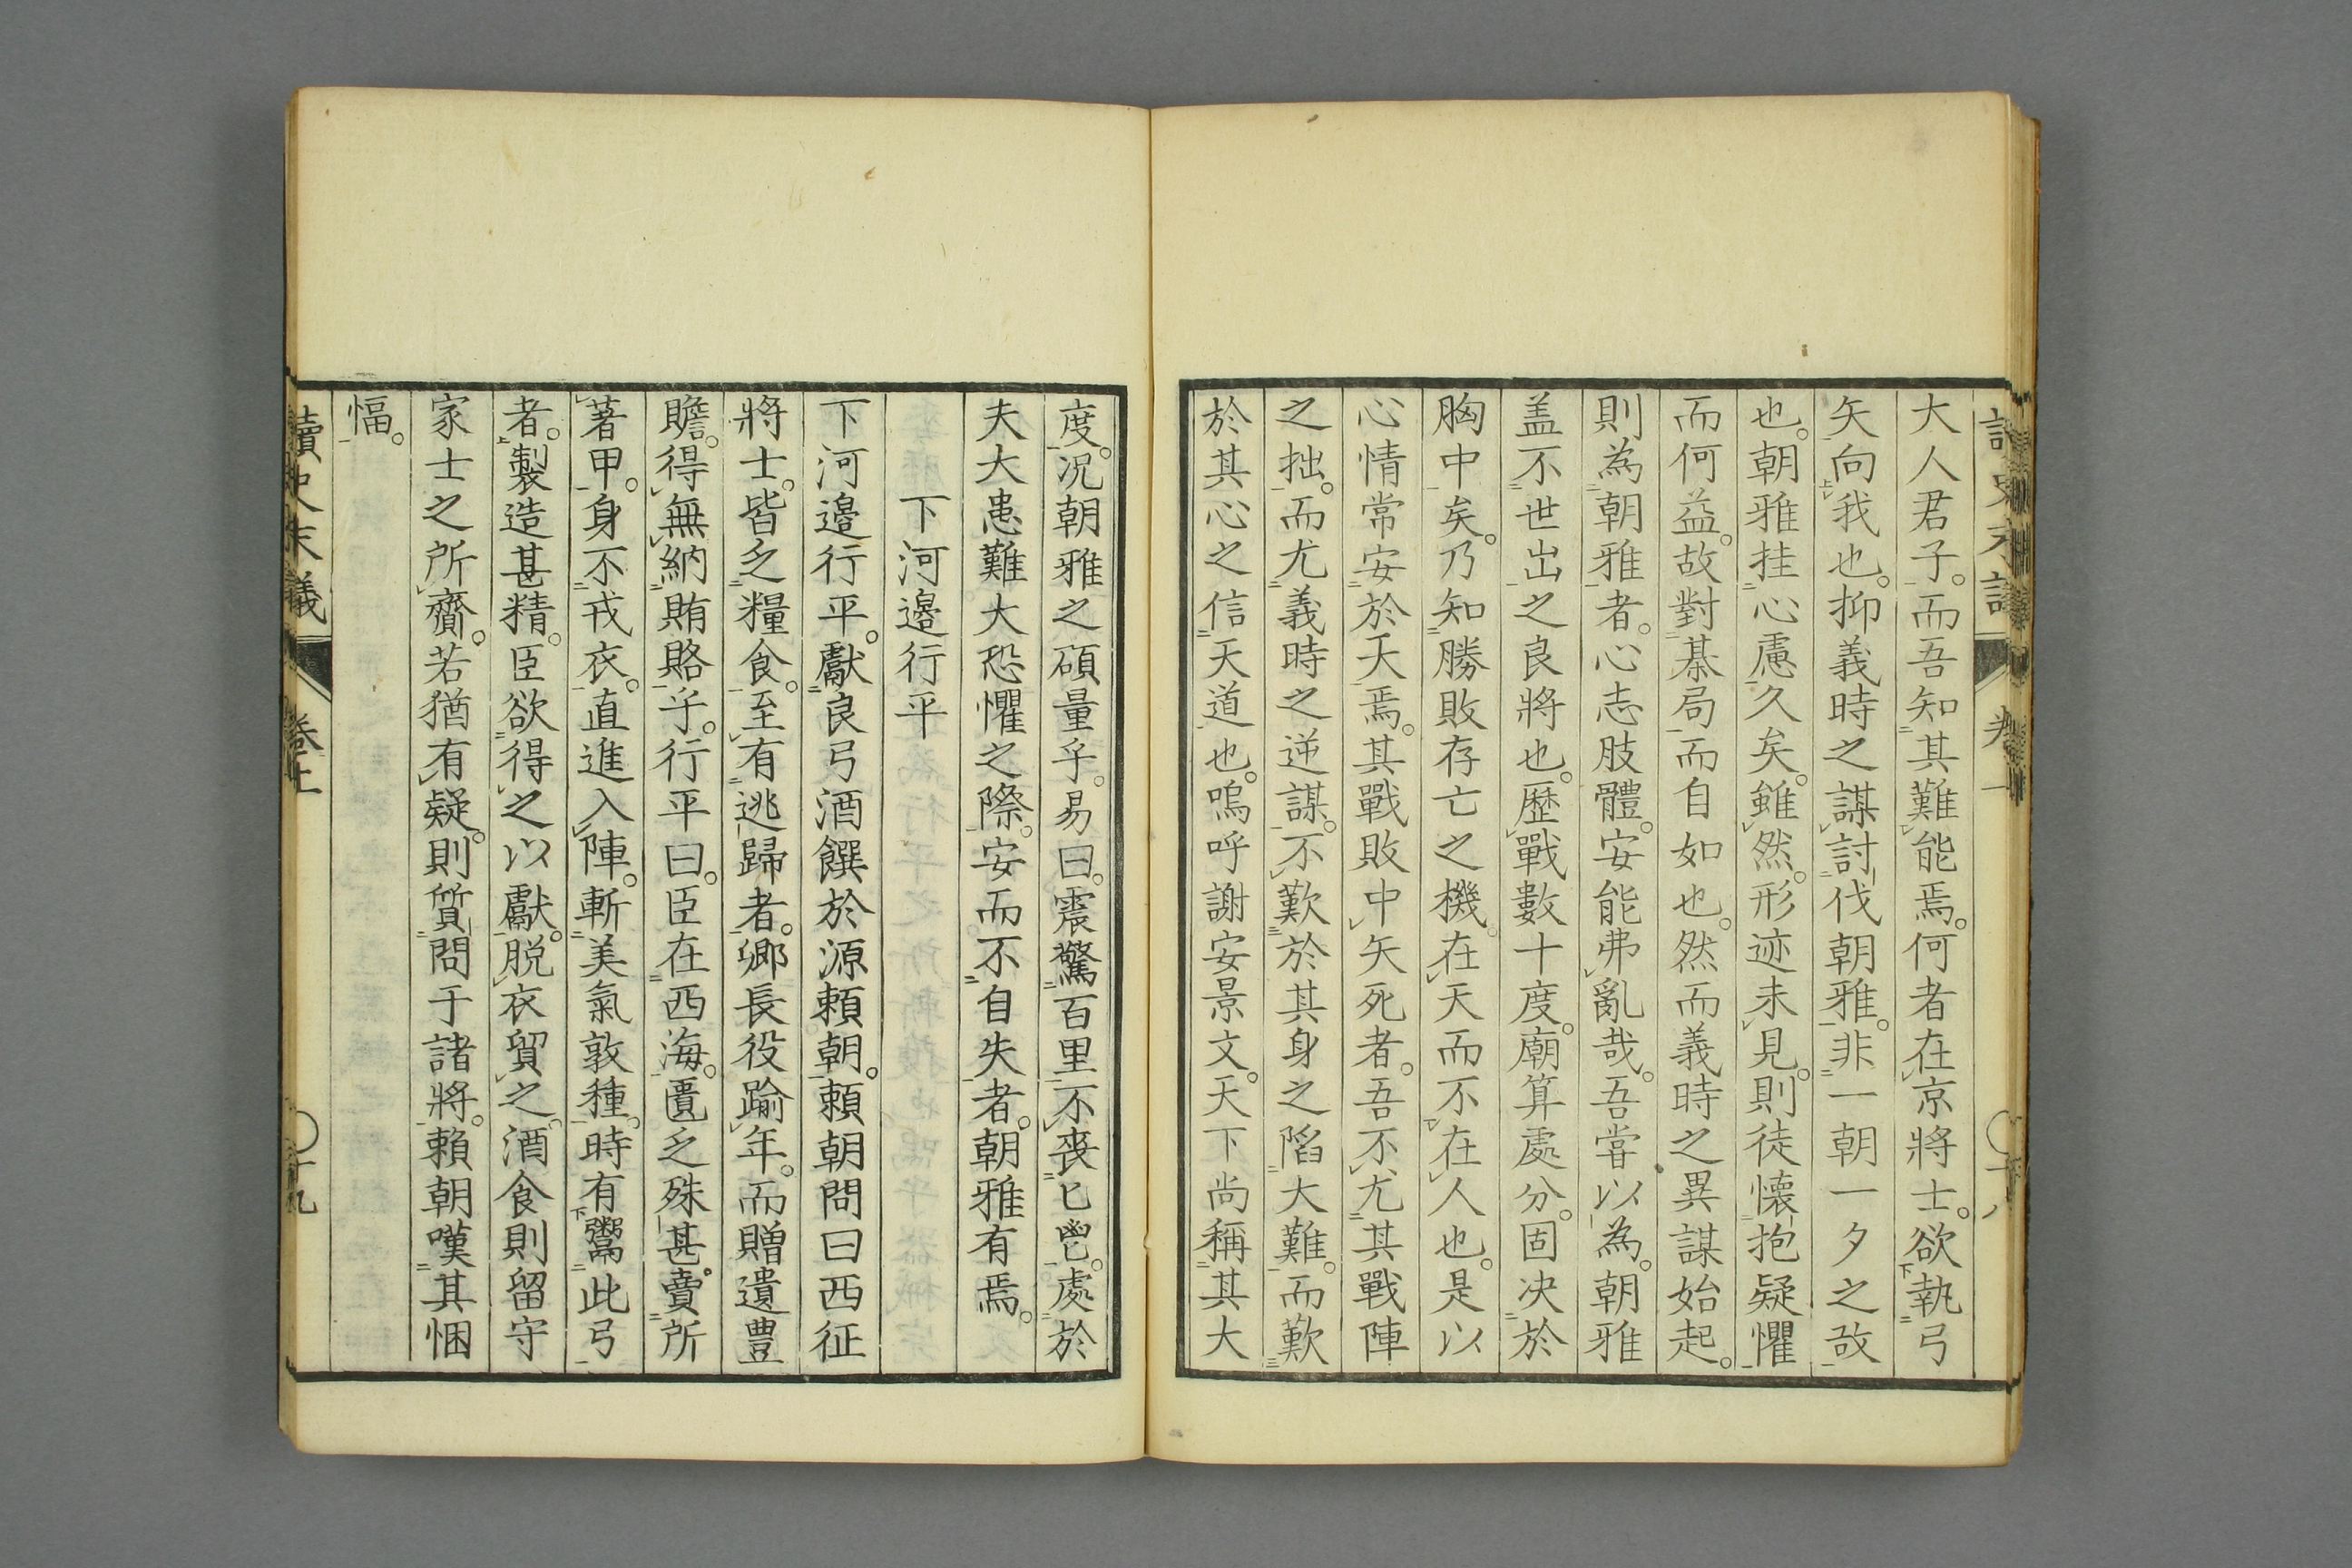 大人君子。而吾知其難能焉。何者在京將士。欲執弓
矢向我也。抑義時之謀討伐朝雅。非一朝一夕之故
也。朝雅挂心慮久矣。雖然。形迹未見。則徒懐抱疑懼
而何益。故對棊局而自如也。然而義時之異謀始起。
則為朝雅者。心志肢體。安能弗亂哉。吾甞以為。朝雅
盖不世出之良將也。歴戰數十度。廟算處分。固决於
胸中矣。乃知勝敗存亡之機。在天而不在人也。是以
心情常安於天焉。其戰敗中矢死者。吾不尤其戰陣
之拙。而尤義時之逆謀。不歎於其身之陷大難。而歎
於其心之信天道也。嗚呼謝安景文。天下尚稱其大
度。况朝雅之碩量乎。易曰。震驚百里不喪匕鬯。處於
夫大患難大恐懼之際。安而不自失者。朝雅有焉。
下河邉行平
下河邉行平。獻良弓酒饌於源頼朝。頼朝問曰西征
將士。皆乏糧食。至有逃歸者。卿長役踰年。而贈遺豊
贍。得無納賄賂乎。行平曰。臣在西海。匱乏殊甚。賣所
著甲。身不戎衣。直進入陣。斬美氣敦種。時有鬻此弓
者。製造甚精。臣欲得之以獻。脱衣貿之。酒食則留守
家士之所齎。若猶有疑。則質問于諸將。頼朝嘆其悃
愊。
讀史末議
卷上
十九